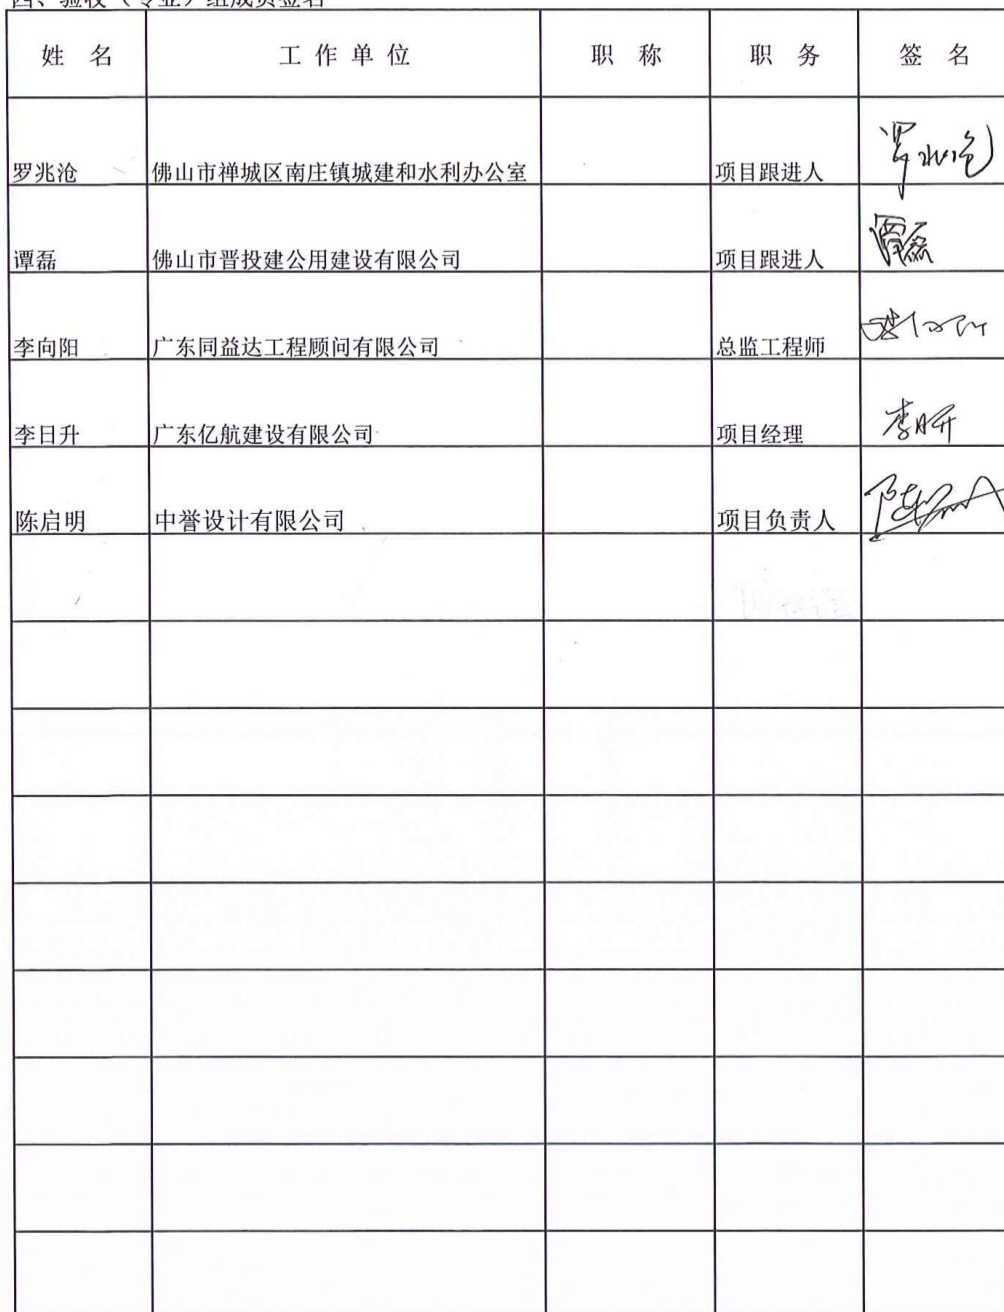 四、验收（专业）组成员签名
姓 名 工 作 单 位 职 称 职 务 签 名
罗兆沧 佛山市禅城区南庄镇城建和水利办公室 项目跟进人 罗兆沧
谭磊 佛山市晋投建公用建设有限公司 项目跟进人 谭磊
李向阳 广东同益达工程顾问有限公司 总监工程师
李日升 广东亿航建设有限公司 项目经理 李日升
陈启明 中誉设计有限公司 项目负责人 陈启明